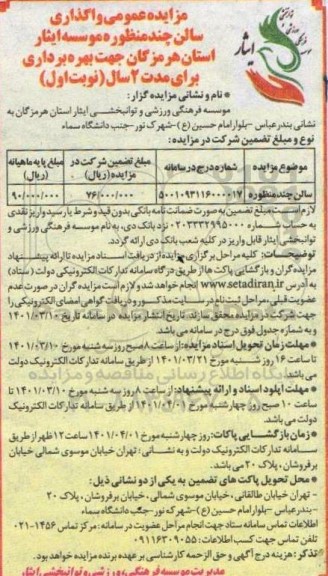 مزایده عمومی واگذاری
سالن چندمنظوره موسسه ایثار
استان هرمزگان جهت بهره برداری
برای مدت ۲ سال (نوبت اول)
ایثار
* نام و نشانی مزایده گزار:
موسسه فرهنگی ورزشی و توانبخشی ایثار استان هرمزگان به
نشانی بندرعباس -بلوار امام حسین (ع) -شهرک نور-جنب دانشگاه سماء
نوع و مبلغ تضمین شرکت در مزایده:
موضوع مزایده | شماره درج در سامانه | مبلغ تضمین شرکت در مزایده (ریال) | مبلغ پایه ماهیانه (ریال)
سالن چندمنظوره | ۵۰۰۱۰۹۳۱۱۶۰۰۰۰۱۷ | ۷۶/۰۰۰/۰۰۰ | ۹۰/۰۰۰/۰۰۰
لازم است مبلغ تضمین به صورت ضمانت نامه بانکی بدون قید و شرط یا رسید واریز نقدی
به حساب شماره نزد بانک دی، به نام موسسه فرهنگی ورزشی و
توانبخشی ایثار قابل واریز در کلیه شعب بانک دی ارائه گردد.
توضیحات: کلیه مراحل برگزاری مزایده از دریافت اسناد مزایده تا ارائه پیشنهاد
مزایده گران و بازگشایی پاکت ها از طریق درگاه سامانه تدارکات الکترونیکی دولت (ستاد)
به آدرس www.setadiran.ir انجام خواهد شد و لازم است مزایده گران در صورت عدم
عضویت قبلی، مراحل ثبت نام در سایت مذکور و دریافت گواهی امضای الکترونیکی را
جهت شرکت در مزایده محقق سازند. تاریخ انتشار مزایده در سامانه تاریخ ۱۴۰۱/۰۳/۱۰
و به شماره جدول فوق درج در سامانه می باشد.
* مهلت زمان تحویل اسناد مزایده: از ساعت ۸ صبح روز سه شنبه مورخ ۱۴۰۱/۰۳/۱۰
تا ساعت ۱۶ روز شنبه مورخ ۱۴۰۱/۰۳/۲۱ از طریق سامانه تدارکات الکترونیک دولت
می باشد.
* مهلت اپلود اسناد و ارائه پیشنهاد: از ساعت ۸ روز سه شنبه مورخ ۱۴۰۱/۰۳/۱۰ تا
ساعت ۱۰ صبح روز چهارشنبه مورخ ۱۴۰۱/۰۴/۰۱ از طریق سامانه تدارکات الکترونیک
دولت می باشد.
* زمان بازگشایی پاکات: روز چهارشنبه مورخ ۱۴۰۱/۰۴/۰۱ ساعت ۱۲ ظهر از طریق
سامانه تدارکات الکترونیک دولت و به نشانی: تهران خیابان موسوی شمالی، خیابان
برفروشان، پلاک ۲۰ می باشد.
* محل تحویل پاکت های تضمین به یکی از دو نشانی ذیل:
- تهران خیابان طالقانی، خیابان موسوی شمالی، خیابان برفروشان، پلاک ۲۰
-بندرعباس -بلوار امام حسین (ع) -شهرک نور -جنب دانشگاه سماء
اطلاعات تماس سامانه ستاد جهت انجام مراحل عضویت در سامانه: مرکز تماس ۱۴۵۶-۰۲۱
تلفن تماس جهت کسب اطلاعات: ۰۹۱۱۶۳۰۹۰۵۵
تذکر: هزینه درج آگهی و حق الزحمه کارشناسی بر عهده برنده مزایده خواهد بود.
مدیریت موسسه فرهنگی، ورزشی و توانبخشی ایثار